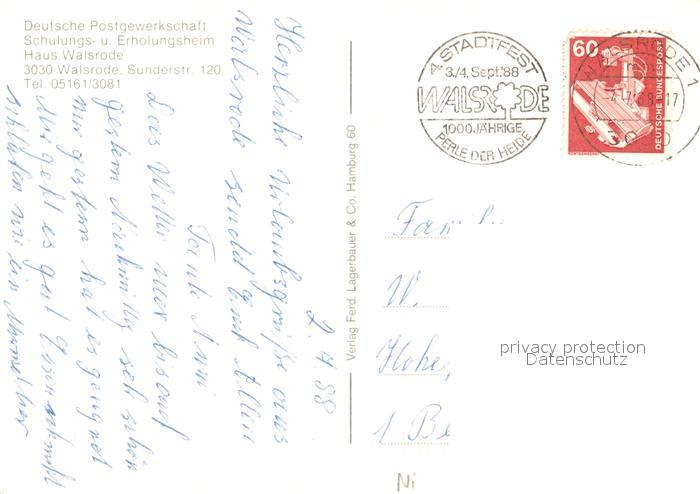 Deutsche Postgewerkschaft
Schulungs- u. Erholungsheim
Haus Walsrode
3030 Walsrode, Sunderstr. 120
Tel. 05161/3081
2. 4. 88
Herzliche Urlaubsgrüße aus
Walsrode sendet Euch Allen
Tante Anni
Das Wetter war bis auf
gestern Nachmittag sehr schön
nur gestern hat es geregnet
Mir geht es gut Essen schmeckt
schlafen wie ein Murmeltier
Verlag Ferd. Lagerbauer & Co. Hamburg 60
4. STADTFEST
3./4. Sept.'88
WALSRODE
1000JÄHRIGE
PERLE DER HEIDE
60
DEUTSCHE BUNDESPOST
WALSRODE 1
Fam
W.
Hohe
1 Be
privacy protection
Datenschutz
Ni